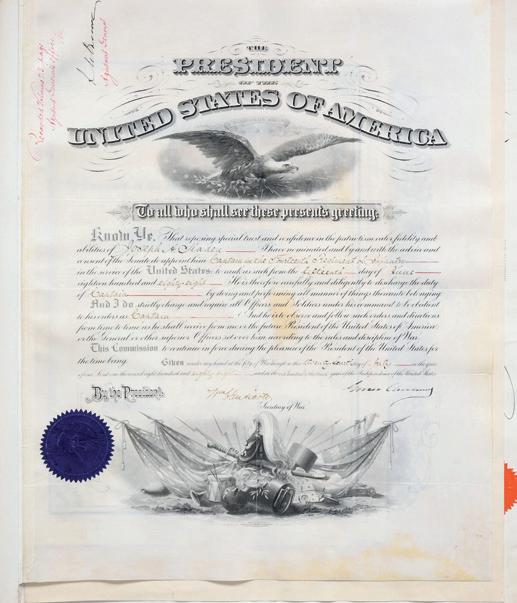 THE
PRESIDENT
OF THE
UNITED STATES OF AMERICA
To all who shall see these presents greeting:
Know Ye, That reposing special trust and confidence in the patriotism, valor, fidelity and
abilities of Joseph A. I have nominated and by and with the advice and
consent of the Senate do appoint him Captain in the Regiment of Infantry
in the service of the United States: to rank as such from the fifteenth day of June
eighteen hundred and eighty eight. He is therefore carefully and diligently to discharge the duty
of Captain by doing and performing all manner of things thereunto belonging.
And I do strictly charge and require all Officers and Soldiers under his command to be obedient
to his orders as Captain And he is to observe and follow such orders and directions
from time to time as he shall receive from me or the future President of the United States of America
or the General or other superior Officers set over him according to the rules and discipline of War.
This Commission to continue in force during the pleasure of the President of the United States for
the time being.
Given under my hand at the City of Washington this day of July in the year
of our Lord one thousand eight hundred and eighty eight and in the one hundred and year of the Independence of the United States.
By the President,
Secretary of War.
Adjutant General